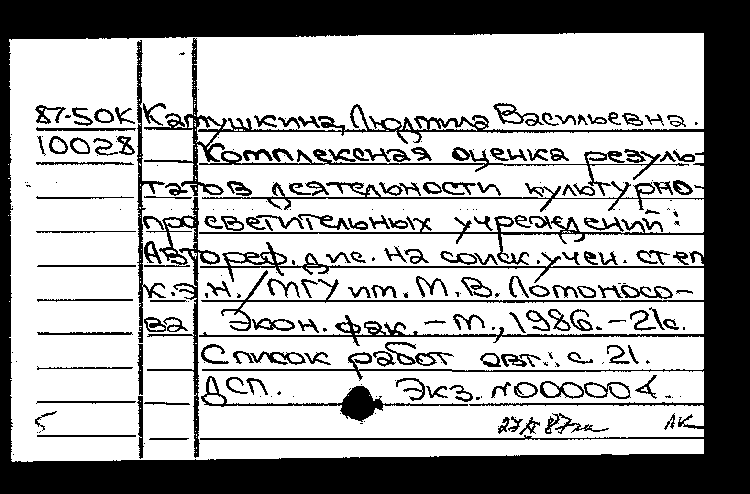 87-50К Катушкина, Людмила Васильевна.
10028 Комплексная оценка резуль-
татов деятельности культурно-
просветительных учреждений:
Автореф. дис. на соиск. учен. степ
к.э.н. / МГУ им. М.В. Ломоносо-
ва. Экон. фак. - М., 1986. - 21с.
Список работ авт.: с. 21.
ДСП. Экз. №000004.
5 АК